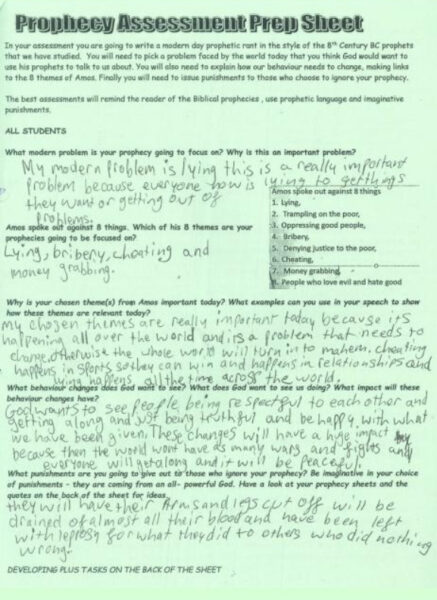 Prophecy Assessment Prep Sheet
In your assessment you are going to write a modern day prophetic rant in the style of the 8th Century BC prophets
that we have studied. You will need to pick a problem faced by the world today that you think God would want to
use his prophets to talk to us about. You will also need to explain how our behaviour needs to change, making links
to the 8 themes of Amos. Finally you will need to issue punishments to those who choose to ignore your prophecy.
The best assessments will remind the reader of the Biblical prophecies , use prophetic language and imaginative
punishments.
ALL STUDENTS
What modern problem is your prophecy going to focus on? Why is this an important problem?
My modern problem is lying this is a really important
problem because everyone how is lying to get things
they want or getting out of
problems.
Amos spoke out against 8 things. Which of his 8 themes are your
prophecies going to be focused on?
Lying, bribery, cheating and
money grabbing.
Amos spoke out against 8 things
1. Lying,
2. Trampling on the poor,
3. Oppressing good people,
4. Bribery,
5. Denying justice to the poor,
6. Cheating,
7. Money grabbing,
8. People who love evil and hate good
Why is your chosen theme(s) from Amos important today? What examples can you use in your speech to show
how these themes are relevant today?
My chosen themes are really important today because its
happening all over the world and is a problem that needs to
change, otherwise the whole world will turn in to mahem. cheating
happens in sports so they can win and happens in relationships and
lying happens all the time across the world.
What behaviour changes does God want to see? What does God want to see us doing? What impact will these
behaviour changes have?
God wants to see people being respectful to each other and
getting along and just being truthful and be happy with what
we have been given. These changes will have a huge impact
because then the world wont have as many wars and fights and
everyone will get along and it will be peaceful.
What punishments are you going to give out to those who ignore your prophecy? Be imaginative in your choice
of punishments - they are coming from an all- powerful God. Have a look at your prophecy sheets and the
quotes on the back of the sheet for ideas
they will have their Arms and legs cut off will be
drained of almost all their blood and have been left
with leprosy for what they did to others who did nothing
wrong.
DEVELOPING PLUS TASKS ON THE BACK OF THE SHEET